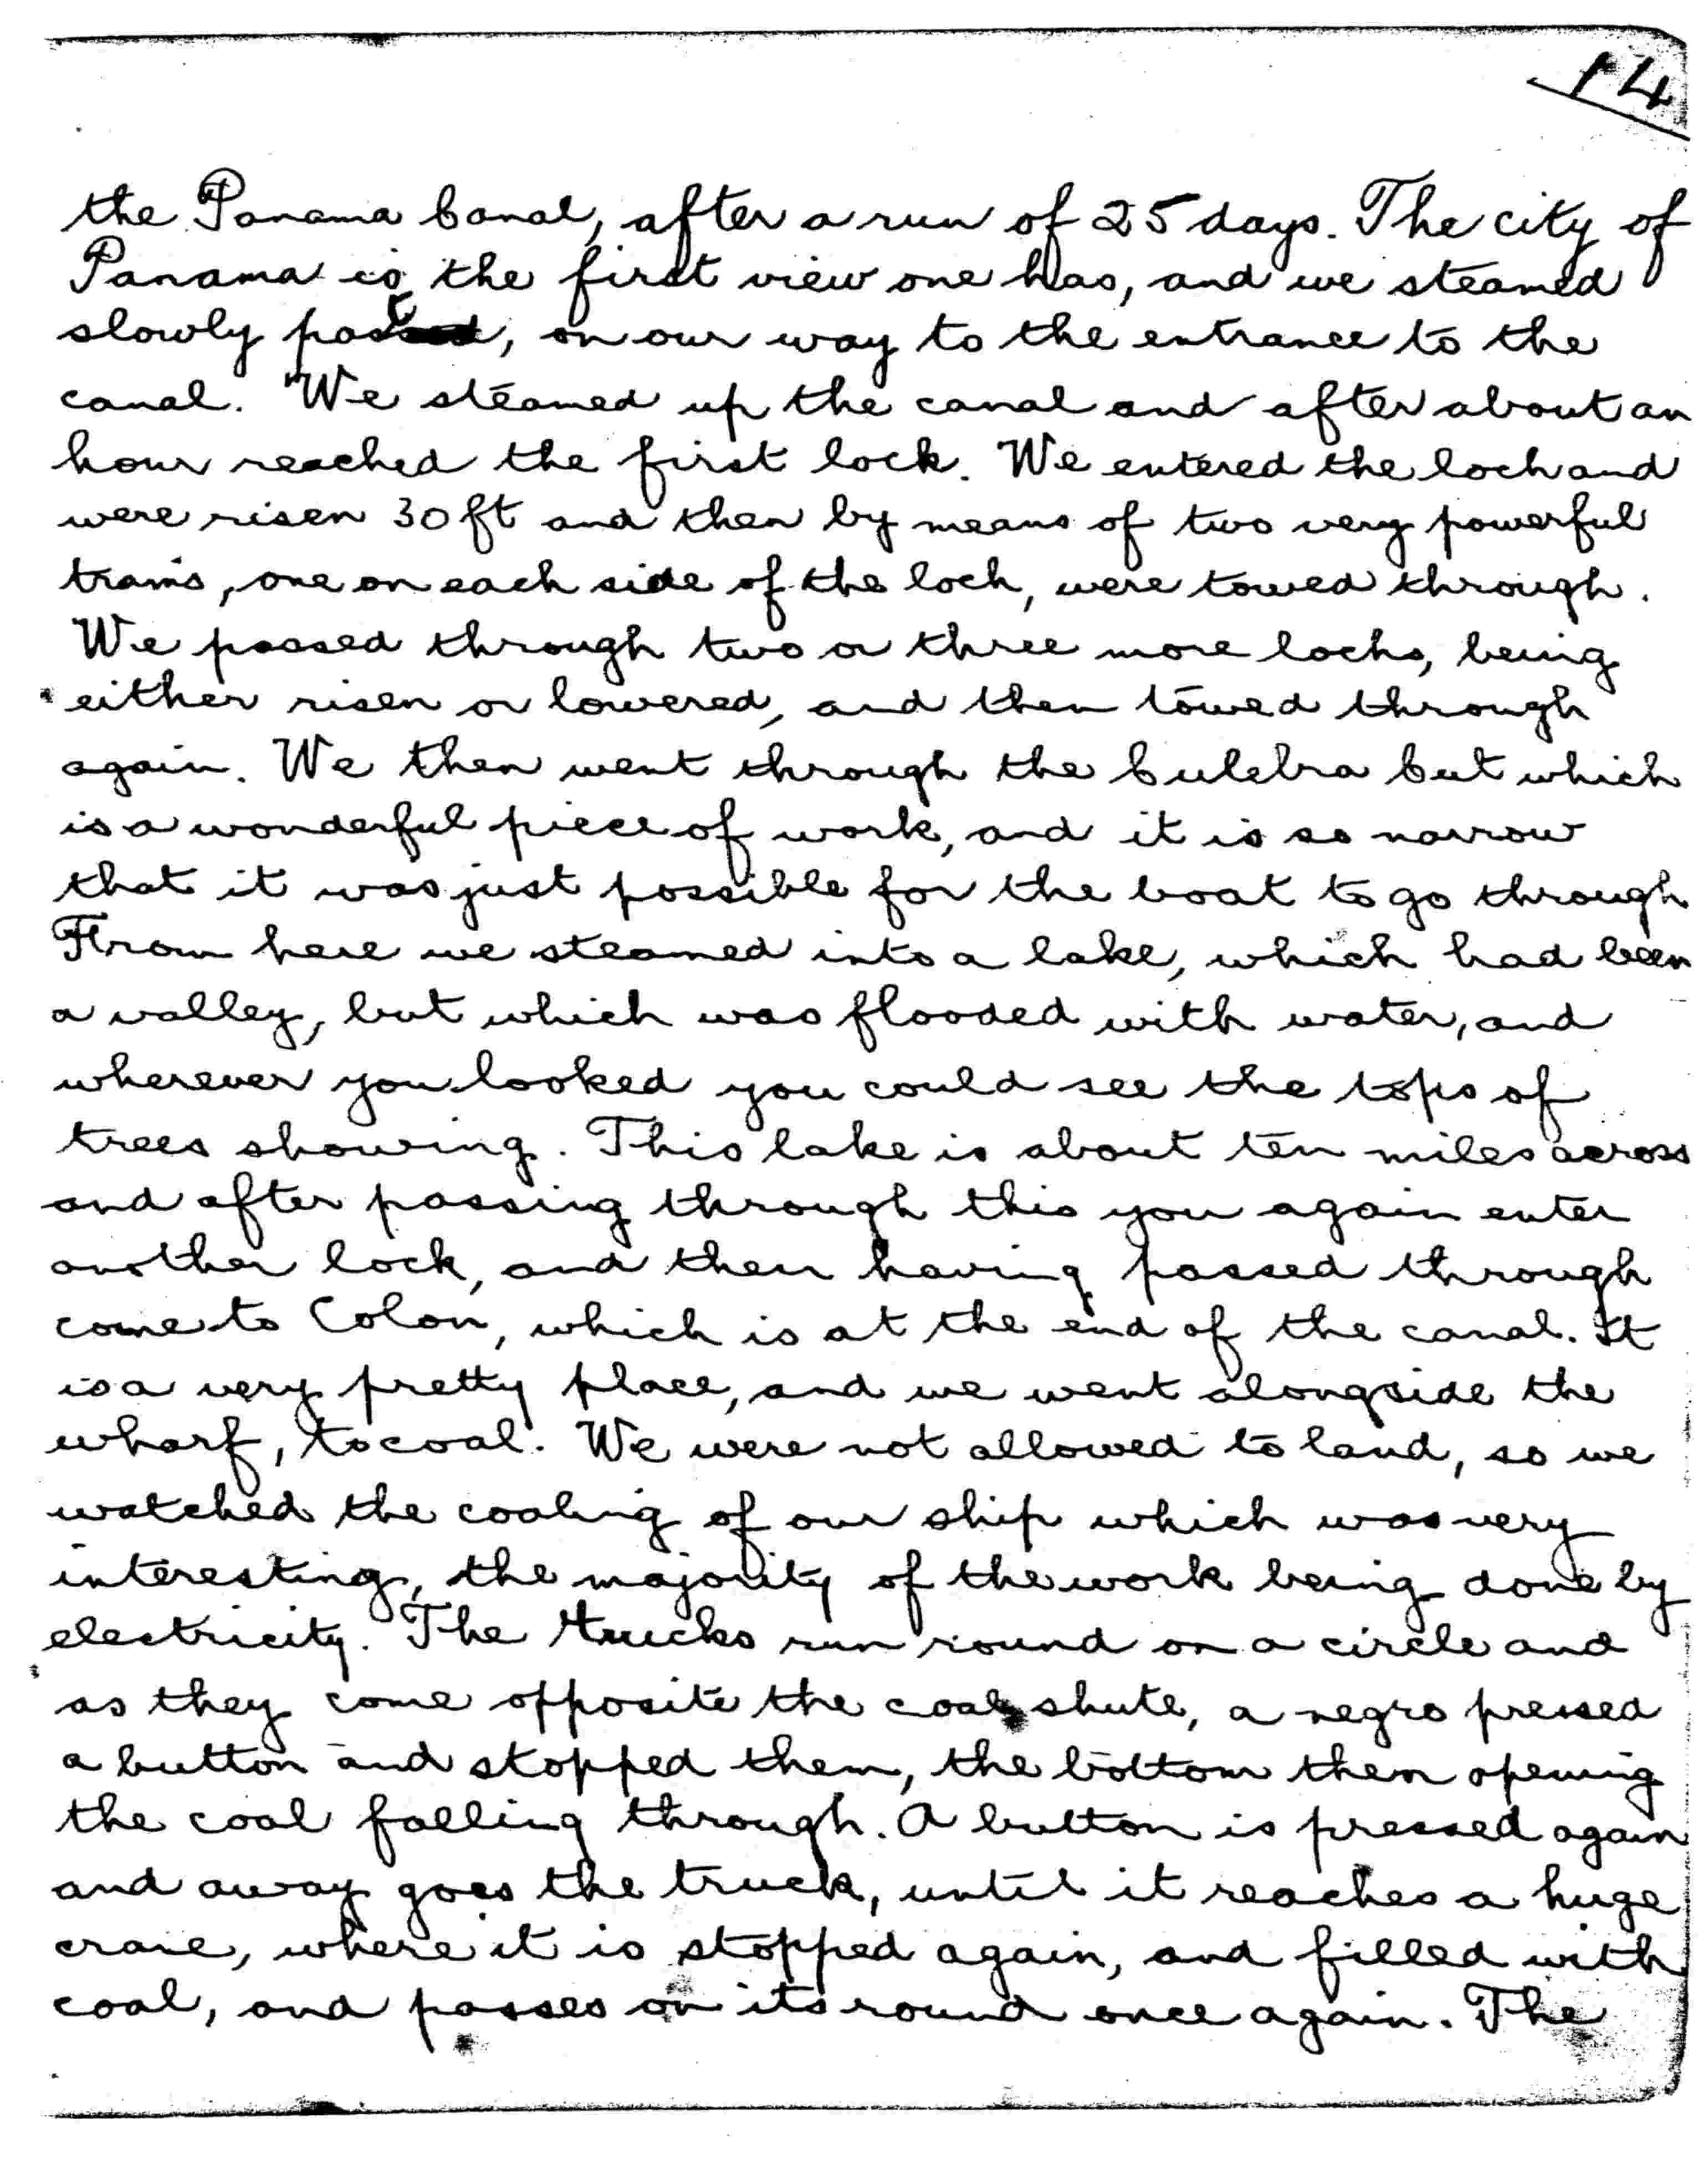 14
the Panama Canal, after a run of 25 days. The city of
Panama is the first view one has, and we steamed
slowly past, on our way to the entrance to the
canal. "We steamed up the canal and after about an
hour reached the first lock. We entered the loch and
were risen 30 ft and then by means of two very powerful
trams, one on each side of the loch, were towed through.
We passed through two or three more lochs, being
either risen or lowered, and then towed through
again. We then went through the Culebra Cut which
is a wonderful piece of work, and it is so narrow
that it was just possible for the boat to go through
From here we steamed into a lake, which had been
a valley, but which was flooded with water, and
wherever you looked you could see the tops of
trees showing. This lake is about ten miles across
and after passing through this you again enter
another lock, and then having passed through
come to Colon, which is at the end of the canal. It
is a very pretty place, and we went alongside the
wharf, to coal. We were not allowed to land, so we
watched the coaling of our ship which was very
interesting, the majority of the work being done by
electricity. The trucks run round on a circle and
as they come opposite the coal shute, a negro pressed
a button and stopped them, the bottom then opening
the coal falling through. A button is pressed again
and away goes the truck, until it reaches a huge
crane, where it is stopped again, and filled with
coal, and passes on its round once again. The